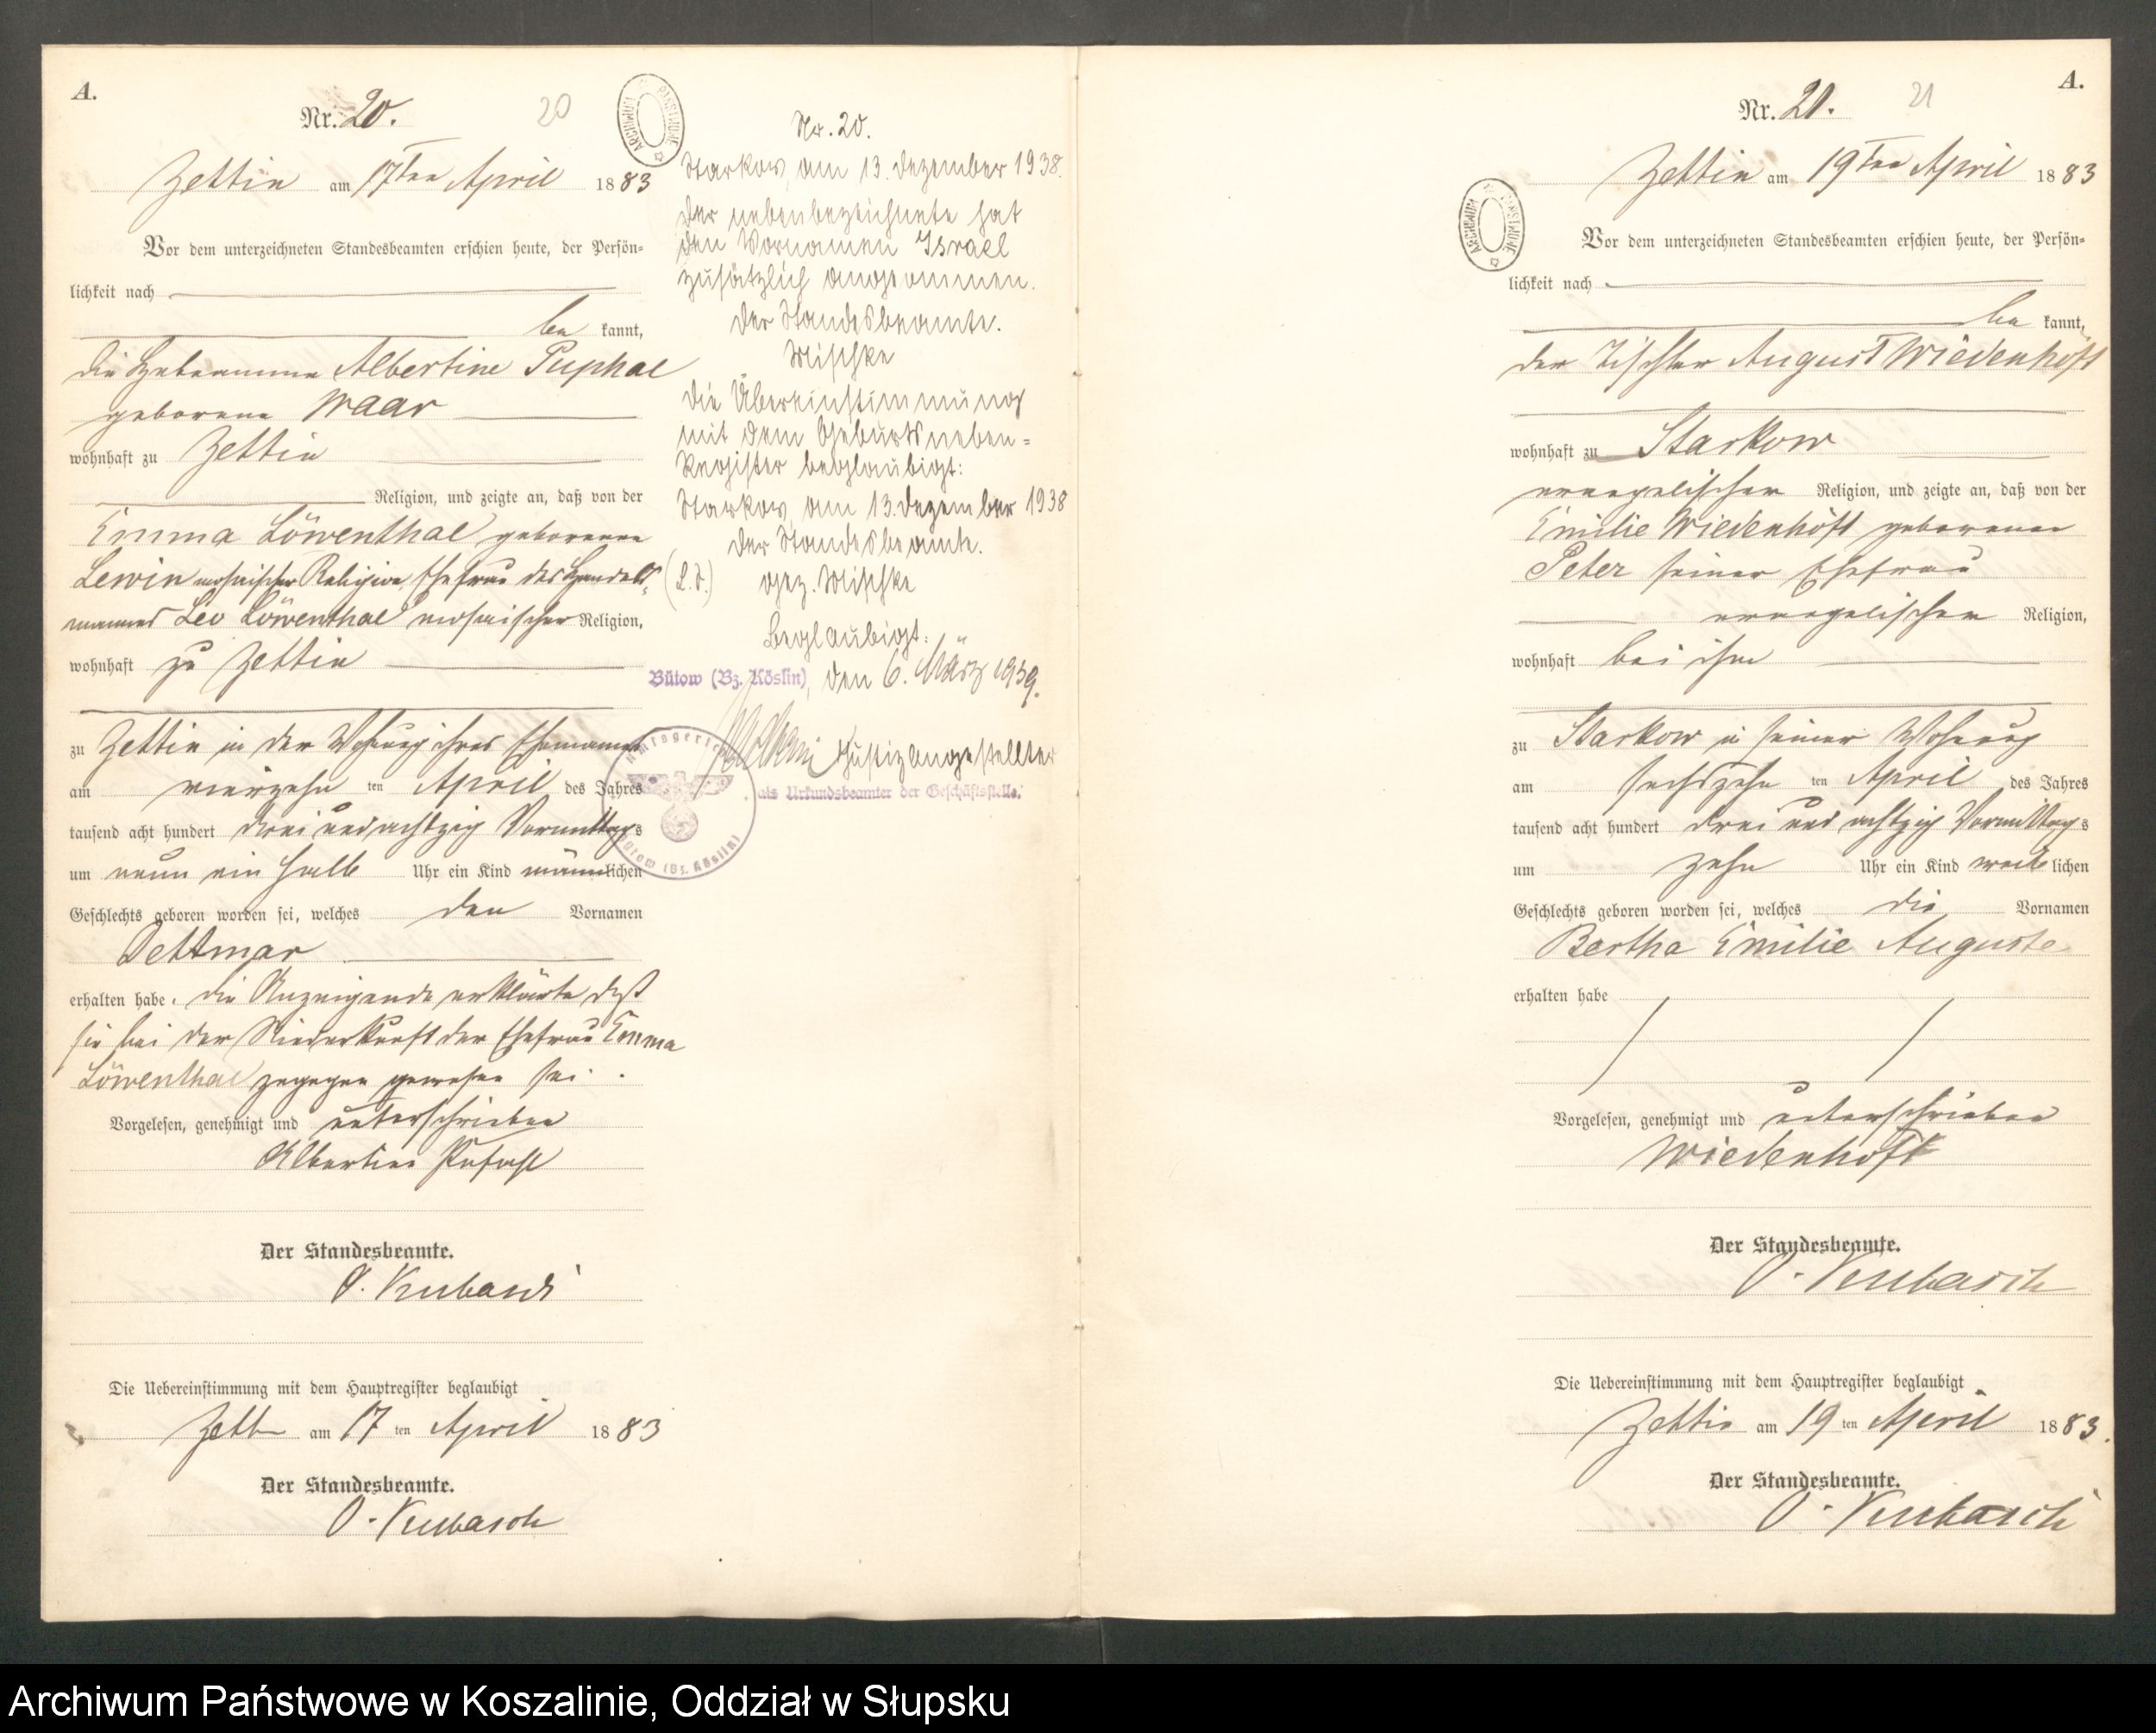 A.
Nr. 20.
20
ARCHIWUM PAŃSTWOWE
Zettin am 17ten April 1883
Vor dem unterzeichneten Standesbeamten erschien heute, der Persön-
lichkeit nach
be kannt,
die Hebeamme Albertine Puphal
geborene Waar
wohnhaft zu Zettin
Religion, und zeigte an, daß von der
Emma Löwenthal geborenen
Lewin mosaischer Religion, Ehefrau des Handels-
mannes Leo Löwenthal mosaischer Religion,
wohnhaft zu Zettin
zu Zettin in der Wohnung ihres Ehemannes
am vierzehn ten April des Jahres
tausend acht hundert drei und achtzig Vormittags
um neun ein halb Uhr ein Kind männlichen
Geschlechts geboren worden sei, welches den Vornamen
Dettmar
erhalten habe. die Anzeigende erklärte daß
sie bei der Niederkunft der Ehefrau Emma
Löwenthal zugegen gewesen sei.
Vorgelesen, genehmigt und unterschrieben
Albertine Pufahl
Der Standesbeamte.
Die Uebereinstimmung mit dem Hauptregister beglaubigt
Zettin am 17 ten April 1883
Der Standesbeamte.
Nr. 20.
Starkow, am 13. Dezember 1938.
Der nebenbezeichnete hat
den Vornamen Israel
zusätzlich angenommen.
Der Standesbeamte.
Mischke
Die Übereinstimmung
mit dem Geburtsneben=
Register beglaubigt:
Starkow, am 13. Dezember 1938
Der Standesbeamte.
(L.S.) gez. Mischke
Beglaubigt:
Bütow (Bz. Köslin), den 6. März 1939.
Justizangestellter
als Urkundsbeamter der Geschäftsstelle.
Amtsgericht
Bütow (Bz. Köslin)
A.
Nr. 21.
21
ARCHIWUM PAŃSTWOWE
Zettin am 19ten April 1883
Vor dem unterzeichneten Standesbeamten erschien heute, der Persön-
lichkeit nach
be kannt,
der Tischler August Wiedenhöft
wohnhaft zu Starkow
evangelischer Religion, und zeigte an, daß von der
Emilie Wiedenhöft geborenen
Peter seiner Ehefrau
evangelischer Religion,
wohnhaft bei ihm
zu Starkow in seiner Wohnung
am sechszehn ten April des Jahres
tausend acht hundert drei und achtzig Vormittags
um zehn Uhr ein Kind weib lichen
Geschlechts geboren worden sei, welches die Vornamen
Bertha Emilie Auguste
erhalten habe
Vorgelesen, genehmigt und unterschrieben
Wiedenhöft
Der Standesbeamte.
Die Uebereinstimmung mit dem Hauptregister beglaubigt
Zettin am 19 ten April 1883.
Der Standesbeamte.
Archiwum Państwowe w Koszalinie, Oddział w Słupsku